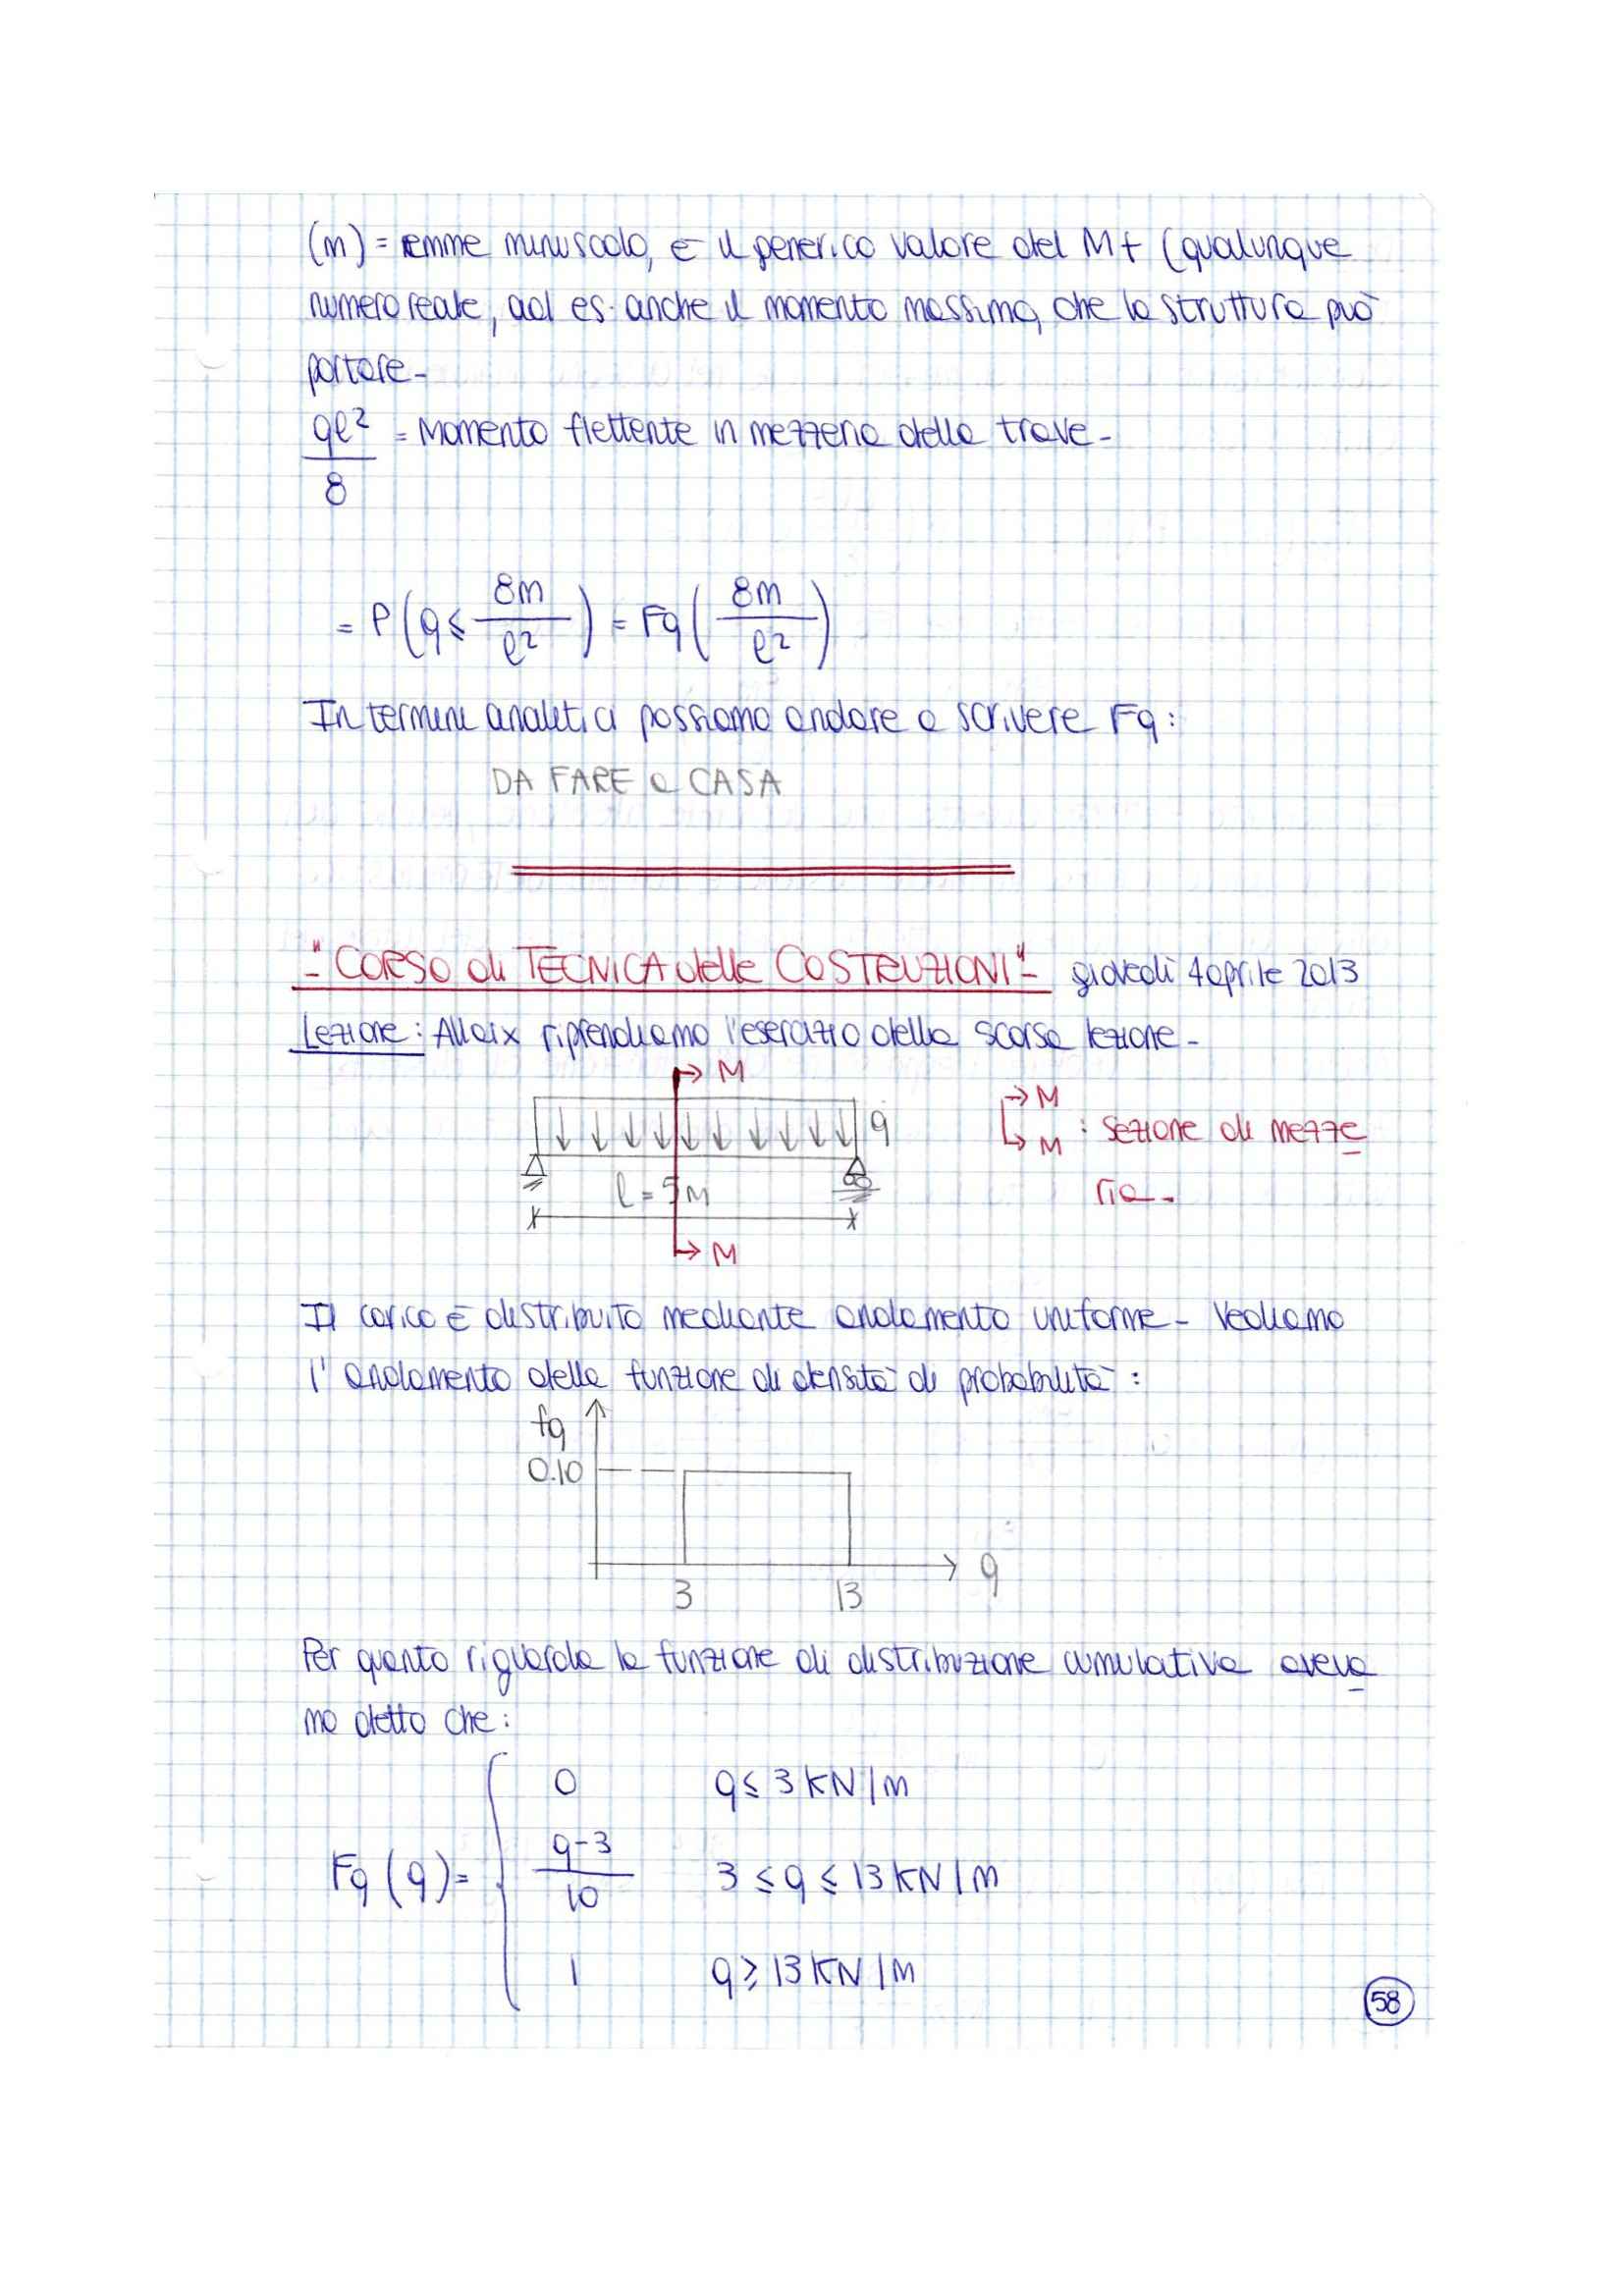 (m) = emme minuscolo, è il generico valore del Mf (qualunque
numero reale, ad es. anche il momento massimo, che la struttura può
portare-
ql²/8 = Momento flettente in mezzeria della trave-
= P(q ≤ 8m/l²) = Fq(8m/l²)
In termini analitici possiamo andare a scrivere Fq:
DA FARE a CASA
-"CORSO di TECNICA delle COSTRUZIONI"- giovedì 4 aprile 2013
Lezione: Allaix riprendiamo l'esercizio della scorsa lezione-
M
q
l = 5 M
M
M
M : sezione di mezze
ria-
Il carico è distribuito mediante andamento uniforme- Vediamo
l'andamento della funzione di densità di probabilità:
fq
0.10
3 13 q
Per quanto riguarda la funzione di distribuzione cumulativa aveva
mo detto che:
0 q ≤ 3 KN/m
Fq (q) = (q-3)/10 3 ≤ q ≤ 13 KN/m
1 q ≥ 13 KN/m
58